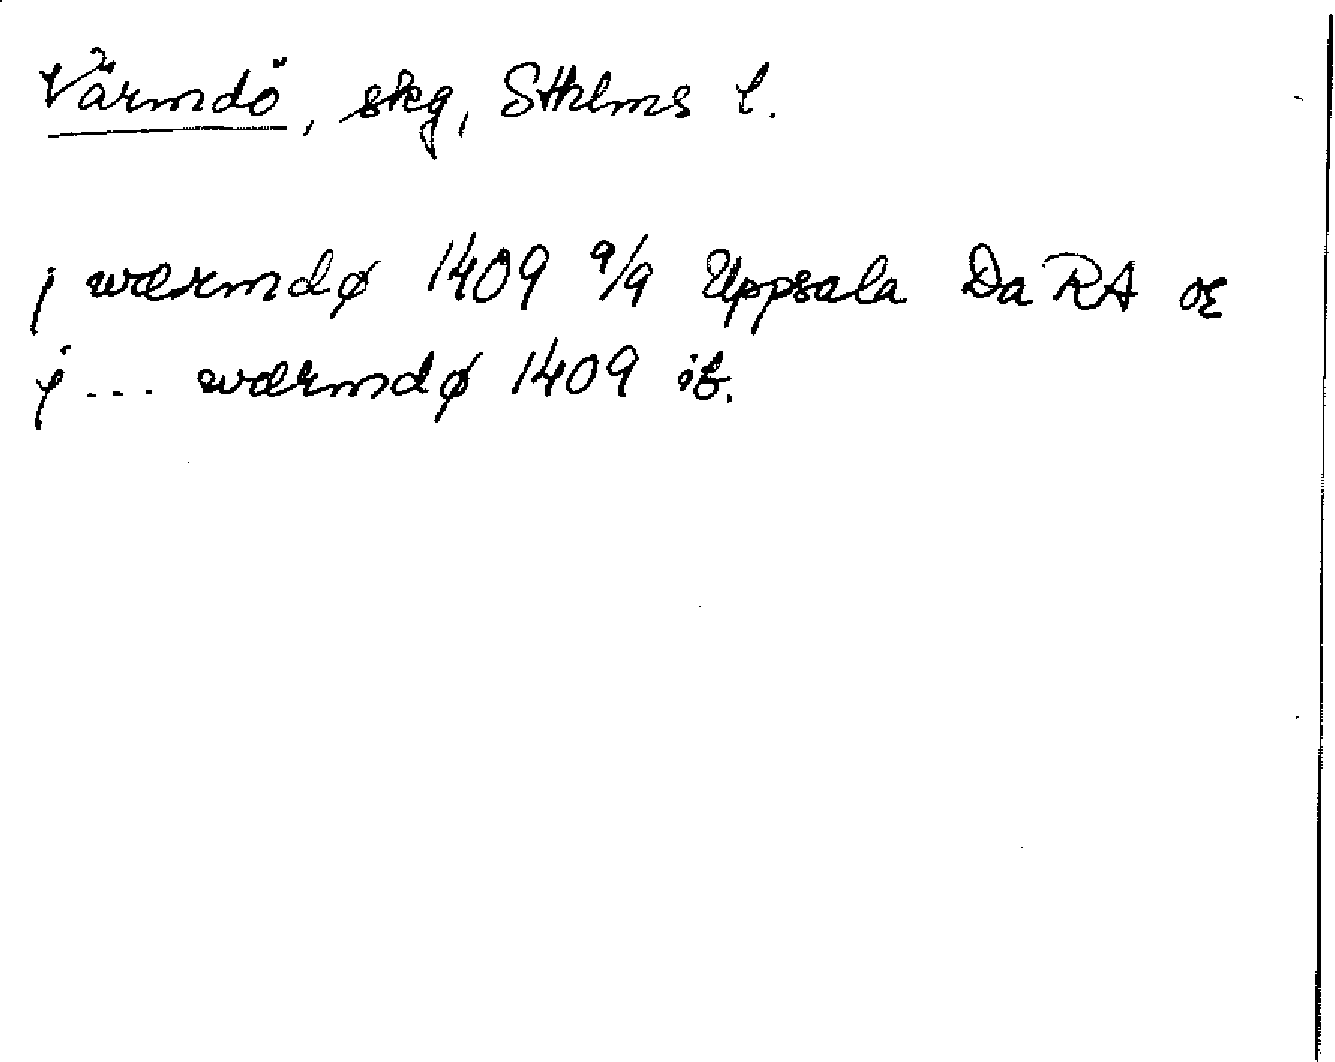 Värmdö, skg, Sthlms l.
j wærmdø 1409 9/9 Uppsala Da RA or
j ... wærmdø 1409 ib.